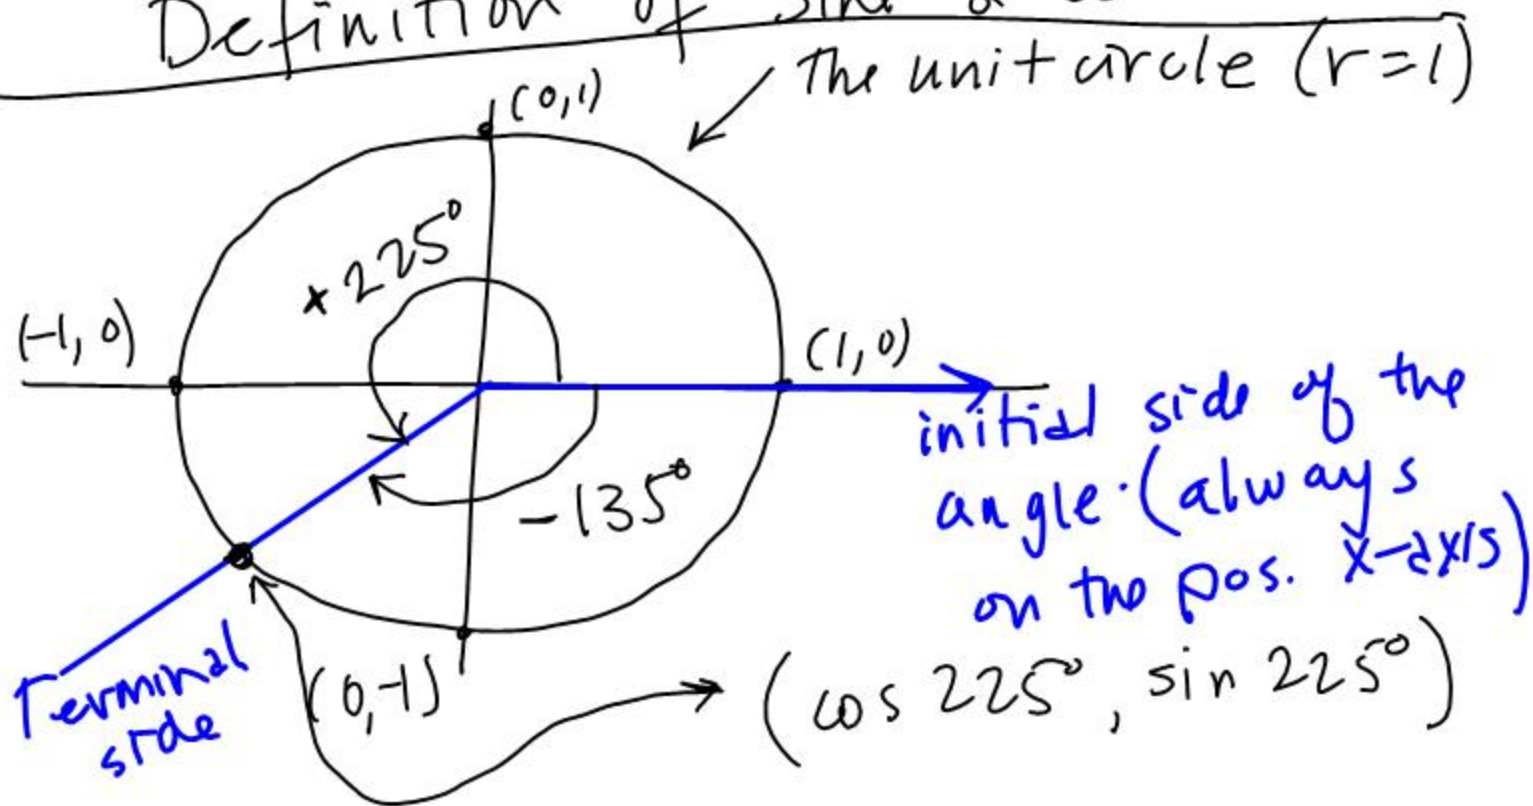 Definition of sine &
The unit circle (r=1)
(0,1)
+225°
(-1, 0)
(1,0)
initial side of the
angle (always
on the pos. x-axis)
-135°
Terminal
side
(0,-1)
(cos 225°, sin 225°)